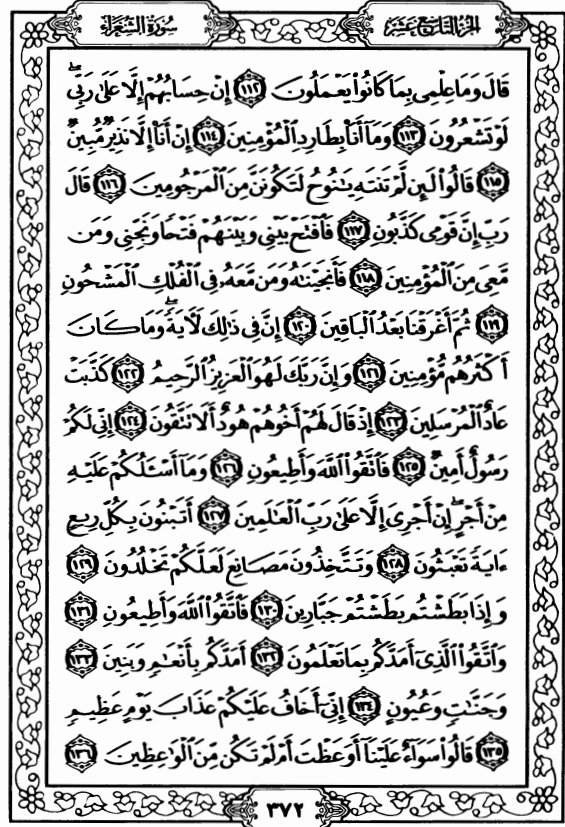 سُورَةُ الشُّعَرَاءِ الجُزْءُ التَّاسِعَ عَشَرَ
قَالَ وَمَا عِلْمِى بِمَا كَانُوا۟ يَعْمَلُونَ ﴿١١٢﴾ إِنْ حِسَابُهُمْ إِلَّا عَلَىٰ رَبِّىۖ
لَوْ تَشْعُرُونَ ﴿١١٣﴾ وَمَآ أَنَا۠ بِطَارِدِ ٱلْمُؤْمِنِينَ ﴿١١٤﴾ إِنْ أَنَا۠ إِلَّا نَذِيرٌ مُّبِينٌ
﴿١١٥﴾ قَالُوا۟ لَئِن لَّمْ تَنتَهِ يَـٰنُوحُ لَتَكُونَنَّ مِنَ ٱلْمَرْجُومِينَ ﴿١١٦﴾ قَالَ
رَبِّ إِنَّ قَوْمِى كَذَّبُونِ ﴿١١٧﴾ فَٱفْتَحْ بَيْنِى وَبَيْنَهُمْ فَتْحًا وَنَجِّنِى وَمَن
مَّعِىَ مِنَ ٱلْمُؤْمِنِينَ ﴿١١٨﴾ فَأَنجَيْنَـٰهُ وَمَن مَّعَهُۥ فِى ٱلْفُلْكِ ٱلْمَشْحُونِ
﴿١١٩﴾ ثُمَّ أَغْرَقْنَا بَعْدُ ٱلْبَاقِينَ ﴿١٢٠﴾ إِنَّ فِى ذَٰلِكَ لَـَٔايَةًۖ وَمَا كَانَ
أَكْثَرُهُم مُّؤْمِنِينَ ﴿١٢١﴾ وَإِنَّ رَبَّكَ لَهُوَ ٱلْعَزِيزُ ٱلرَّحِيمُ ﴿١٢٢﴾ كَذَّبَتْ
عَادٌ ٱلْمُرْسَلِينَ ﴿١٢٣﴾ إِذْ قَالَ لَهُمْ أَخُوهُمْ هُودٌ أَلَا تَتَّقُونَ ﴿١٢٤﴾ إِنِّى لَكُمْ
رَسُولٌ أَمِينٌ ﴿١٢٥﴾ فَٱتَّقُوا۟ ٱللَّهَ وَأَطِيعُونِ ﴿١٢٦﴾ وَمَآ أَسْـَٔلُكُمْ عَلَيْهِ
مِنْ أَجْرٍۖ إِنْ أَجْرِىَ إِلَّا عَلَىٰ رَبِّ ٱلْعَـٰلَمِينَ ﴿١٢٧﴾ أَتَبْنُونَ بِكُلِّ رِيعٍ
ءَايَةً تَعْبَثُونَ ﴿١٢٨﴾ وَتَتَّخِذُونَ مَصَانِعَ لَعَلَّكُمْ تَخْلُدُونَ ﴿١٢٩﴾
وَإِذَا بَطَشْتُم بَطَشْتُمْ جَبَّارِينَ ﴿١٣٠﴾ فَٱتَّقُوا۟ ٱللَّهَ وَأَطِيعُونِ ﴿١٣١﴾
وَٱتَّقُوا۟ ٱلَّذِىٓ أَمَدَّكُم بِمَا تَعْلَمُونَ ﴿١٣٢﴾ أَمَدَّكُم بِأَنْعَـٰمٍ وَبَنِينَ ﴿١٣٣﴾
وَجَنَّـٰتٍ وَعُيُونٍ ﴿١٣٤﴾ إِنِّىٓ أَخَافُ عَلَيْكُمْ عَذَابَ يَوْمٍ عَظِيمٍ
﴿١٣٥﴾ قَالُوا۟ سَوَآءٌ عَلَيْنَآ أَوَعَظْتَ أَمْ لَمْ تَكُن مِّنَ ٱلْوَٰعِظِينَ ﴿١٣٦﴾
٣٧٢